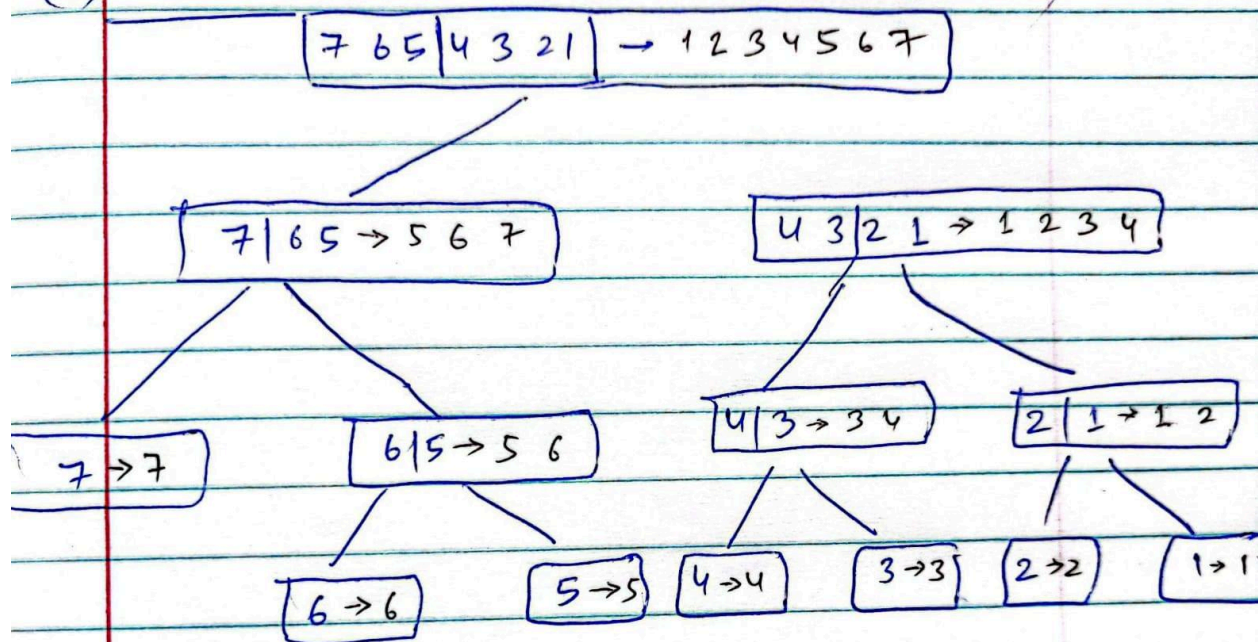 7 6 5 | 4 3 2 1 → 1 2 3 4 5 6 7
7 | 6 5 → 5 6 7
4 3 | 2 1 → 1 2 3 4
7 → 7
6 | 5 → 5 6
4 | 3 → 3 4
2 | 1 → 1 2
6 → 6
5 → 5
4 → 4
3 → 3
2 → 2
1 → 1